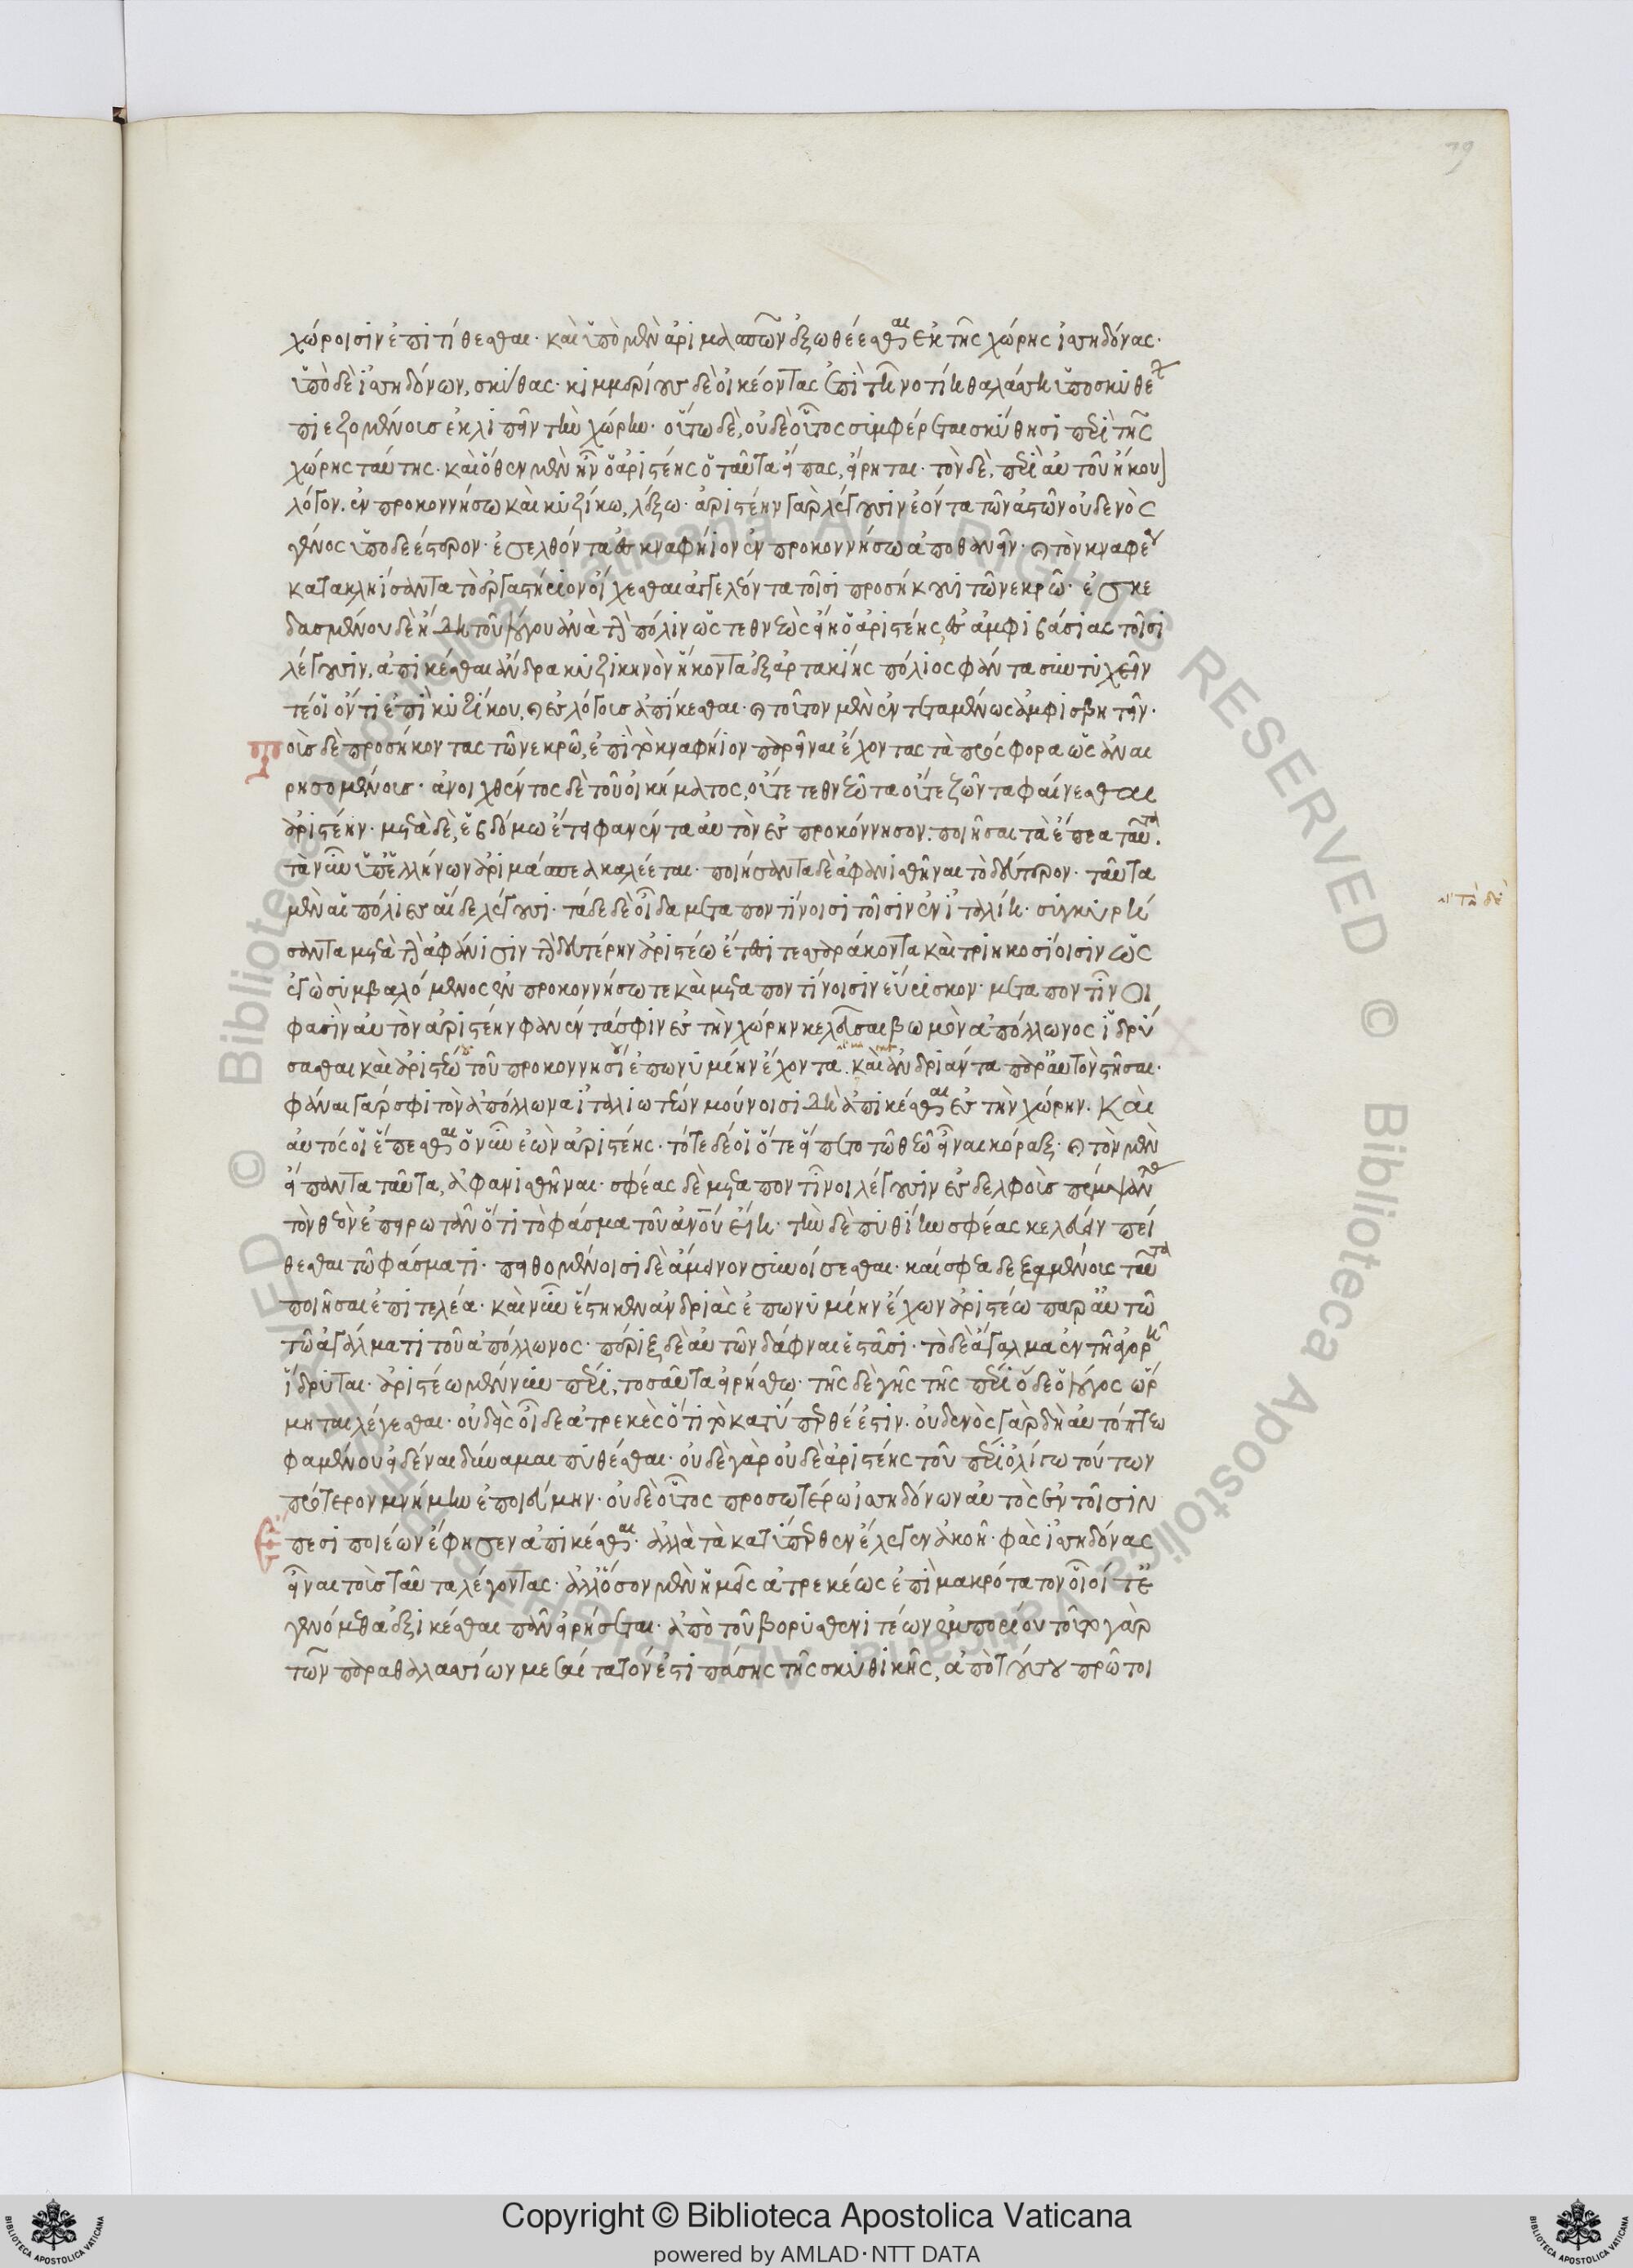 79
χώροισιν ἐπιτίθεσθαι· καὶ ὑπὸ μὲν ἀριμασπῶν ἐξωθέεσθαι ἐκ τῆς χώρης ἰσηδόνας·
ὑπὸ δὲ ἰσηδόνων, σκύθας· κιμμερίους δὲ οἰκέοντας ἐπὶ τῆ νοτίη θαλάσση ὑπὸ σκυθέων
πιεζομένους ἐκλιπεῖν τὴν χώρην· οὕτω δὲ, οὐδὲ οὗτος συμφέρεται σκύθησι περὶ τῆς
χώρης ταύτης· καὶ ὅθεν μὲν ἦν ὁ ἀριστέης ὁ ταῦτα εἴπας, εἴρηται· τὸν δὲ, περὶ αὐτοῦ ἤκουον
λόγον. ἐν προκοννήσω καὶ κυζίκω, λέξω· ἀριστέην γὰρ λέγουσιν ἐόντα τῶν ἀστῶν οὐδενὸς
γένος ὑποδεέστερον· ἐσελθόντα ἐς κναφήϊον ἐν προκοννήσω ἀποθανεῖν· καὶ τὸν κναφέα
κατακληίσαντα τὸ ἐργαστήριον οἴχεσθαι ἀγγελέοντα τοῖσι προσήκουσι τῶ νεκρῶ· ἐσκε
δασμένου δὲ ἤδη τοῦ λόγου ἀνὰ τὴν πόλιν ὡς τεθνεὼς εἴη ὁ ἀριστέης, ἐς ἀμφισβασίας τοῖσι
λέγουσιν, ἀπικέσθαι ἄνδρα κυζικηνὸν ἥκοντα ἐξ ἀρτακίης πόλιος φάντα συντυχεῖν
τέ οἱ ὄντι ἐπὶ κυζίκου, καὶ ἐς λόγους ἀπίκεσθαι· καὶ τοῦτον μὲν ἐντεταμένως ἀμφισβητεῖν·
τοὺς δὲ προσήκοντας τῶ νεκρῶ, ἐπὶ τὸ κναφήϊον παρεῖναι ἔχοντας τὰ πρόσφορα ὡς ἀναι
ρησομένους· ἀνοιχθέντος δὲ τοῦ οἰκήματος, οὔτε τεθνεῶτα οὔτε ζῶντα φαίνεσθαι
ἀριστέην· μετὰ δὲ, ἑβδόμω ἔτει φανέντα αὐτὸν ἐς προκόννησον. ποιῆσαι τὰ ἔπεα ταῦτα.
τὰ νῦν ὑπ' ἑλλήνων ἀριμάσπεα καλέεται· ποιήσαντα δὲ ἀφανισθῆναι τὸ δεύτερον· ταῦτα
μὲν αἱ πόλιες αἵδε λέγουσι· τάδε δὲ οἶδα μεταποντίνοισι τοῖσιν ἐν ἰταλίη· συγκυρή
σαντα μετὰ τὴν ἀφάνισιν τὴν δευτέρην ἀριστέω ἔτεσι τεσσεράκοντα καὶ τριηκοσίοισιν ὡς
ἐγὼ συμβαλόμενος ἐν προκοννήσω τε καὶ μεταποντίνοισιν εὕρισκον· μεταποντῖνοι
φασὶν αὐτὸν ἀριστέην φανέντα σφιν ἐς τὴν χώρην κελεῦσαι βωμὸν ἀπόλλωνος ἱδρύ
σασθαι καὶ ἀριστέω τοῦ προκοννησίου ἐπωνυμίην ἔχοντα. καὶ ἀνδριάντα παρ' αὐτὸν στῆσαι·
φάναι γάρ σφι τὸν ἀπόλλωνα ἰταλιωτέων μούνοισι δὴ ἀπικέσθαι ἐς τὴν χώρην. καὶ
αὐτός οἱ ἕπεσθαι ὁ νῦν ἐὼν ἀριστέης· τότε δέ οἱ ὅτε εἵπετο τῶ θεῶ εἶναι κόραξ· καὶ τὸν μὲν
εἴπαντα ταῦτα, ἀφανισθῆναι· σφέας δὲ μεταποντῖνοι λέγουσιν ἐς δελφοὺς πέμψαντας
τὸν θεὸν ἐπειρωτᾶν ὅ τι τὸ φάσμα τοῦ ἀνθρώπου εἴη· τὴν δὲ πυθίην σφέας κελεύειν πεί
θεσθαι τῶ φάσματι· πειθομένοισι δὲ ἄμεινον συνοίσεσθαι· καί σφεα δεξαμένους ταῦτα
ποιῆσαι ἐπιτελέα· καὶ νῦν ἕστηκεν ἀνδριὰς ἐπωνυμίην ἔχων ἀριστέω παρ' αὐτῶ
τῶ ἀγάλματι τοῦ ἀπόλλωνος· πέριξ δὲ αὐτῶν δάφναι ἑστᾶσι· τὸ δὲ ἄγαλμα ἐν τῆ ἀγορῆ
ἵδρυται· ἀριστέω μέν νυν πέρι, τοσαῦτα εἰρήσθω· τῆς δὲ γῆς τῆς πέρι ὅδε ὁ λόγος ὥρ
μηται λέγεσθαι· οὐδεὶς οἶδε ἀτρεκὲς ὅ τι τὸ κατύπερθέ ἐστιν· οὐδενὸς γὰρ δὴ αὐτόπτεω
φαμένου εἰδέναι δύναμαι πυθέσθαι· οὐδὲ γὰρ οὐδὲ ἀριστέης τοῦ περὶ ὀλίγω τούτων
πρότερον μνήμην ἐποιεύμην· οὐδὲ οὗτος προσωτέρω ἰσηδόνων αὐτὸς ἐν τοῖσιν
ἔπεσι ποιέων ἔφησεν ἀπικέσθαι· ἀλλὰ τὰ κατύπερθεν ἔλεγεν ἀκοῆ· φὰς ἰσηδόνας
εἶναι τοὺς ταῦτα λέγοντας· ἀλλ' ὅσον μὲν ἡμεῖς ἀτρεκέως ἐπὶ μακρότατον οἷοί τε
γενόμεθα ἐξικέσθαι πᾶν εἰρήσεται· ἀπὸ τοῦ βορυσθενιτέων ἐμπορίου τοῦτο γὰρ
τῶν παραθαλασσίων μεσαίτατόν ἐστι πάσης τῆς σκυθικῆς, ἀπὸ τούτου πρῶτοι
Copyright © Biblioteca Apostolica Vaticana
powered by AMLAD·NTT DATA